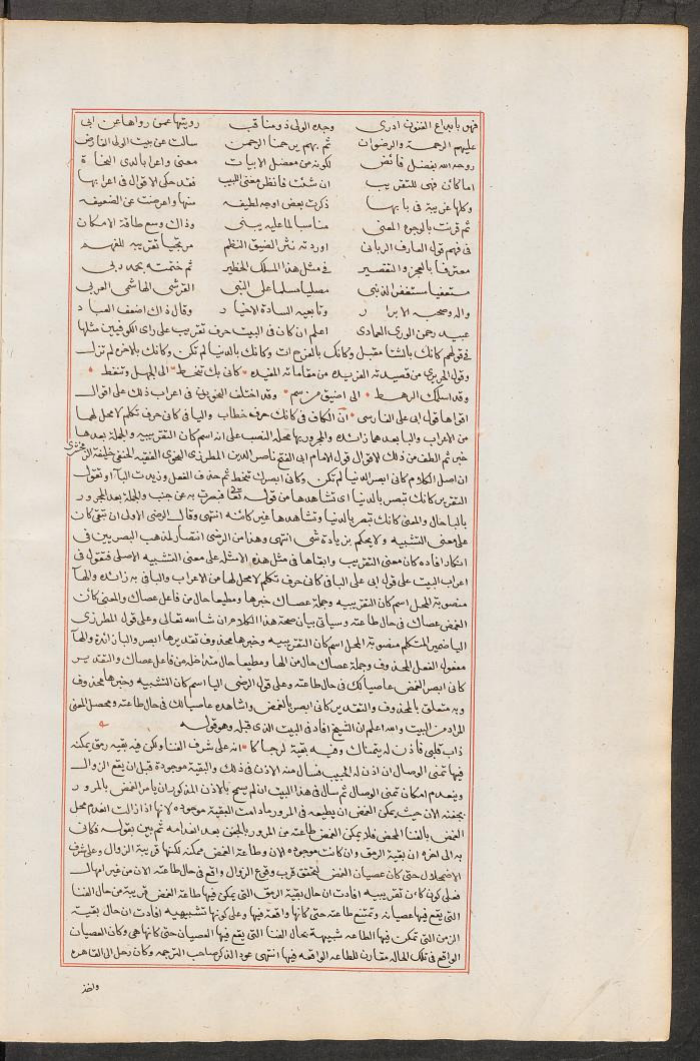 فهو بابداع الفنون ادرى وجده الولى ذو مناقب رويتها عمن رواها عن ابى
عليهم الرحمة والرضوان ثم بهم يرحمنا الرحمن سالت عن بيت الولى الفارض
روحه الله بفضل فائض لكونه من معضل الابيات معنى واعرابا لدى النحاة
اما كان فنى للتقريب ان شئت فانظر مغنى اللبيب فقد حكى الاقوال فى اعرابها
وكلها غريبة فى بابها ذكرت بعض اوجه لطيفه منها واعرضت عن الضعيفه
ثم قرنت بالوجوه المعنى مناسبا لما عليه يبنى وذاك وسع طاقة الامكان
فى فهم قول العارف الربانى اوردته نثرا لضيق النظم مرتجيا تقريبه للفهم
معترفا بالعجز والتقصير فى مثل هذا المسلك الخطير ثم ختمته بحمد ربى
مستعفيا مستغفرا لذنبى مصليا مسلما على النبى القرشى الهاشمى العربى
واله وصحبه الابرار وتابعيه السادة الاخيار وقال ذاك اضعف العباد
عبيد رحمن الورى العمادى اعلم ان كان فى البيت حرف تقريب على راى الكوفيين مثلها
فى قولهم كانك بالشتا مقبل وكانك بالفرج ات وكانك بالدنيا لم تكن وكانك بالاخرة لم تزل
وقول الحريرى من قصيدته الفريده من مقاماته المفيده كانى بك تنحط الى الجهل وتنغط
وقد اسلك الرهط الى اضيق من سم وقد اختلف النحويون فى اعراب ذلك على اقوال
اقواها قول ابى على الفارسى ان الكاف فى كانك حرف خطاب واليا فى كانى حرف تكلم لا محل لهما
من الاعراب والبا بعدهما زائده والمجرور بها محله النصب على انه اسم كان التقريبيه والجملة بعدها
خبر ثم الطف من ذلك الاقوال قول الامام ابى الفتح ناصر الدين المطرزى النحوى الفقيه الحنفى خليفة الزمخشرى
ان اصل الكلام كانى ابصر الدنيا لم تكن وكانى ابصرك تنحط ثم حذف الفعل وزيدت البا او تقول
التقدير كانك تبصر بالدنيا اى تشاهدها من قوله تعا فبصرت به عن جنب والجملة بعد المجرور
بالبا حال والمعنى كانك تبصر بالدنيا وتشاهدها غير كائنه انتهى وقال الرضى الاولى ان تبقى كان
على معنى التشبيه ولا يحكم بزيادة شى انتهى وهذا من الرضى انتصار لمذهب البصريين فى
انكار افاده كان معنى التقريب وابقاها فى مثل هذه الامثله على معنى التشبيه الاصلى فنقول فى
اعراب البيت على قول ابى على اليا فى كانى حرف تكلم لا محل لها من الاعراب والبا فى به زائده والها
منصوبة المحل اسم كان التقريبيه وجملة عصاك خبرها ومطيعا حال من فاعل عصاك والمعنى كان
الغمض عصاك فى حال طاعته وسياتى بيان صحة هذا الكلام ان شا الله تعالى وعلى قول المطرزى
اليا ضمير المتكلم منصوبة المحل اسم كان التقريبيه وخبرها محذوف تقديرها ابصر والبا زائدة والها
مفعول الفعل المحذوف وجملة عصاك حال من الها ومطيعا حال متداخله من فاعل عصاك والتقدير
كانى ابصر الغمض عاصيا لك فى حال طاعته وعلى قول الرضى اليا اسم كان التشبيه وخبرها محذوف
وبه متعلق بالمحذوف والتقدير كانى ابصر بالغمض واشاهده عاصيا لك فى حال طاعته ومحصل المعنى
المراد من البيت والله اعلم ان الشيخ افاد فى البيت الذى قبله وهو قوله
ذاب قلبى فاذن له يتمناك وفيه بقية لرجاكا انه على شرف الفنا ولكن فيه بقيه رمق يمكنه
فيها تمنى الوصال ان اذن له الحبيب فسال منه الاذن فى ذلك والبقية موجودة قبل ان يقع الزوال
وينعدم امكان تمنى الوصال ثم سال فى هذا البيت ان لم يسمح بالاذن المذكور ان يامر الغمض بالمرور
بجفنه الان حيث يمكن الغمض ان يطيعه فى المرور مادامت البقية موجوده لانها اذا زالت انعدم محل
الغمض بالفنا المحض فلا يمكن الغمض طاعته من المرور بالجفن بعد انعدامه ثم بين بقوله فكانى
به الى اخره ان بقية الرمق وان كانت موجوده الان وطاعة الغمض ممكنه لكنها قريبة الزوال وعلى شرف
الاضمحلال حتى كان عصيان الغمض لتحقق قرب وقوع الزوال واقع فى حال طاعته الان من غير امهال
فعلى كون كان تقريبيه افادت ان حال بقية الرمق التى يمكن فيها طاعة الغمض قريبة من حال الفنا
التى يقع فيها عصيانه وتمتنع طاعته حتى كانها واقعة فيها وعلى كونها تشبيهيه افادت ان حال بقيته
الزمن التى تمكن فيها الطاعه شبيهة بحال الفنا التى يقع فيها العصيان حتى كانها هى وكان العصيان
الواقع فى تلك الحاله مقارن للطاعه الواقعه فيها انتهى عود الذكر صاحب الترجمه وكان رحل الى القاهره
واخذ